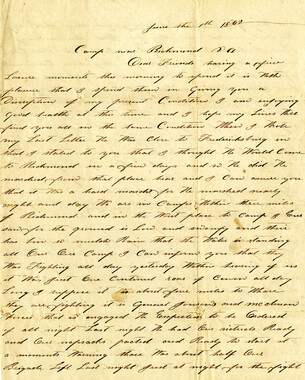 June the 1st 1862
Camp near Richmond VA
Dear Friends having a few
Leasure moments this morning to spend it is with
pleasure that I spend them in Giving you a
Discription of my present Condition I am enjoying
Good health at this time and I hope my Lines will
find you all in the same Condition When I wrote
my Last Letter We Was Close to Fredericksburg and
I stated to you that I thought We Would Come
to Richmond in a few days and so We did We
marched from that place hear and I Can assure you
that it Was a hard march for We marched nearly
night and day We are in Camp Within three miles
of Richmond and in the Wet place to Camp I Ever
saw for the ground is Low and and there
has bin so mutch Rain that the Water is standing
all Over Our Camp I Can inform you that they
Was Fighting all day yesterday Within hearing of us
it Was Just One Continual roar of Cannon all day
Long I suppose it is about four miles to Where
they are fighting it is General and
that is engaged We Expected to be Ordered
off all night Last night We had Our
and Our napsacks packed and Ready to start at
a moments Warning there Was about half Our
Brigade Left Last night Just at